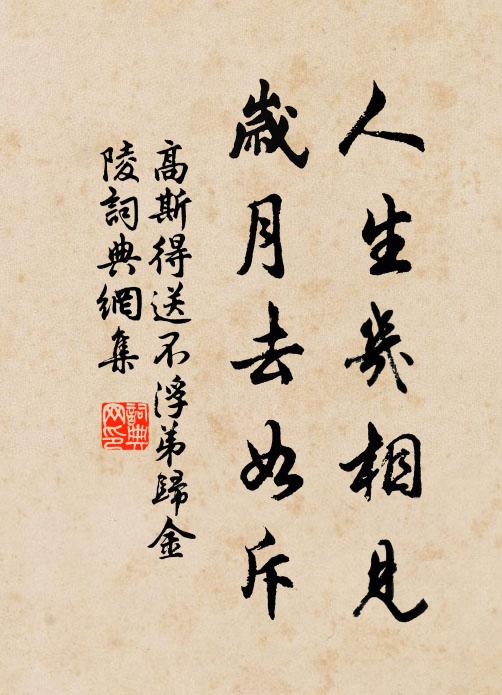 人生幾相見
歳月去如斥
高斯得送不浮弟歸金
陵詞典網集
詞典
网印